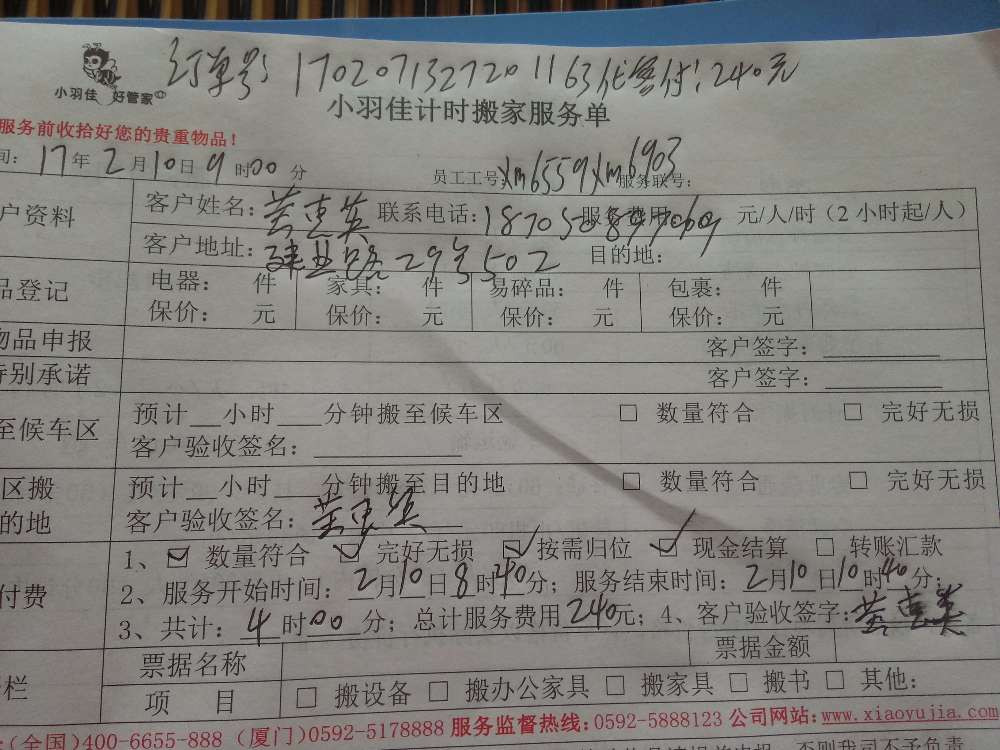 订单号 1702071327201163代客付：240元
小羽佳 好管家
小羽佳计时搬家服务单
服务前收拾好您的贵重物品！
间：17年2月10日9时00分 员工工号：xm6559 xm6903 服务联号：
户资料 客户姓名：黄惠英 联系电话：187050 服务费用 元/人/时（2小时起/人）
客户地址：建业路29号502 目的地：
品登记 电器： 件 家具： 件 易碎品： 件 包裹： 件
保价： 元 保价： 元 保价： 元 保价： 元
物品申报 客户签字：
特别承诺 客户签字：
至候车区 预计 小时 分钟搬至候车区 □ 数量符合 □ 完好无损
客户验收签名：
区搬 预计 小时 分钟搬至目的地 □ 数量符合 □ 完好无损
的地 客户验收签名：黄惠英
1、☑ 数量符合 ☑ 完好无损 ☑ 按需归位 ☑ 现金结算 □ 转账汇款
付费 2、服务开始时间：2月10日8时40分；服务结束时间：2月10日10时40分；
3、共计：4时00分；总计服务费用240元；4、客户验收签字：黄惠英
票据名称 票据金额
栏 项 目 □ 搬设备 □ 搬办公家具 □ 搬家具 □ 搬书 □ 其他：
：(全国)400-6655-888 (厦门)0592-5178888 服务监督热线：0592-5888123 公司网站：www.xiaoyujia.com